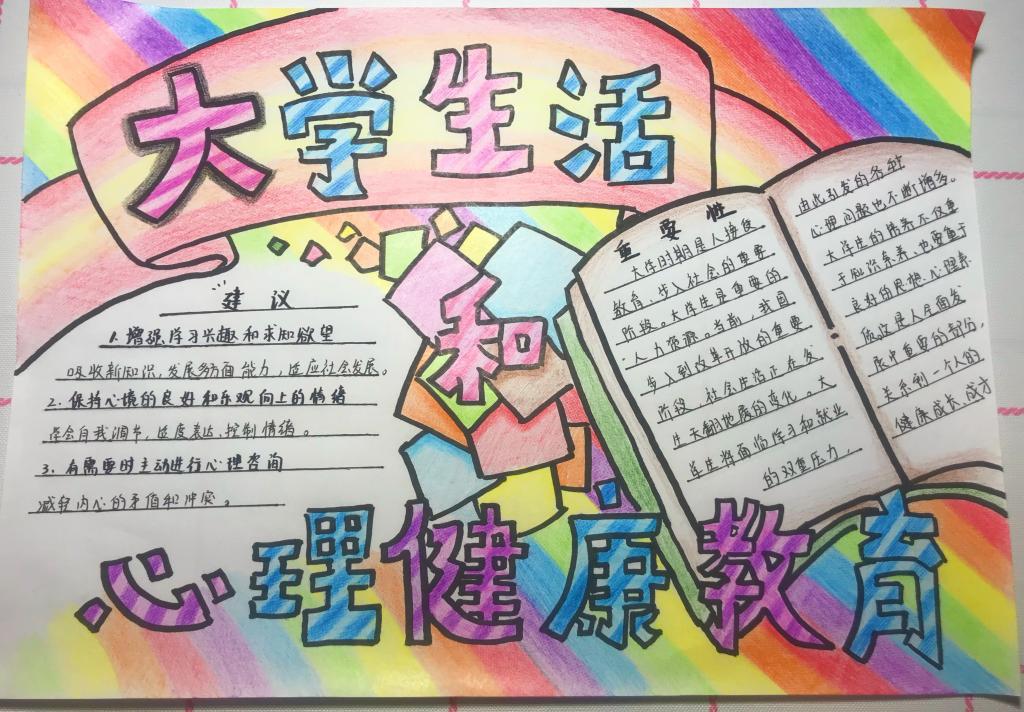 大学生活
和
心理健康教育
建议
1.增强学习兴趣和求知欲望
吸收新知识,发展多方面能力,适应社会发展。
2.保持心境的良好和乐观向上的情绪
学会自我调节,适度表达、控制情绪。
3.有需要时主动进行心理咨询
减轻内心的矛盾和冲突。
重要性
大学时期是人接受
教育、步入社会的重要
阶段。大学生是重要的
人力资源。当前,我国
步入到改革开放的重要
阶段,社会生活正在发
生天翻地覆的变化。大
学生将面临学习和就业
的双重压力,
由此引发的各种
心理问题也不断增多。
大学生的培养不仅重
于知识素养、也要重于
良好的思想、心理素
质这是人全面发
展中重要的部分,
关系到一个人的
健康成长成才